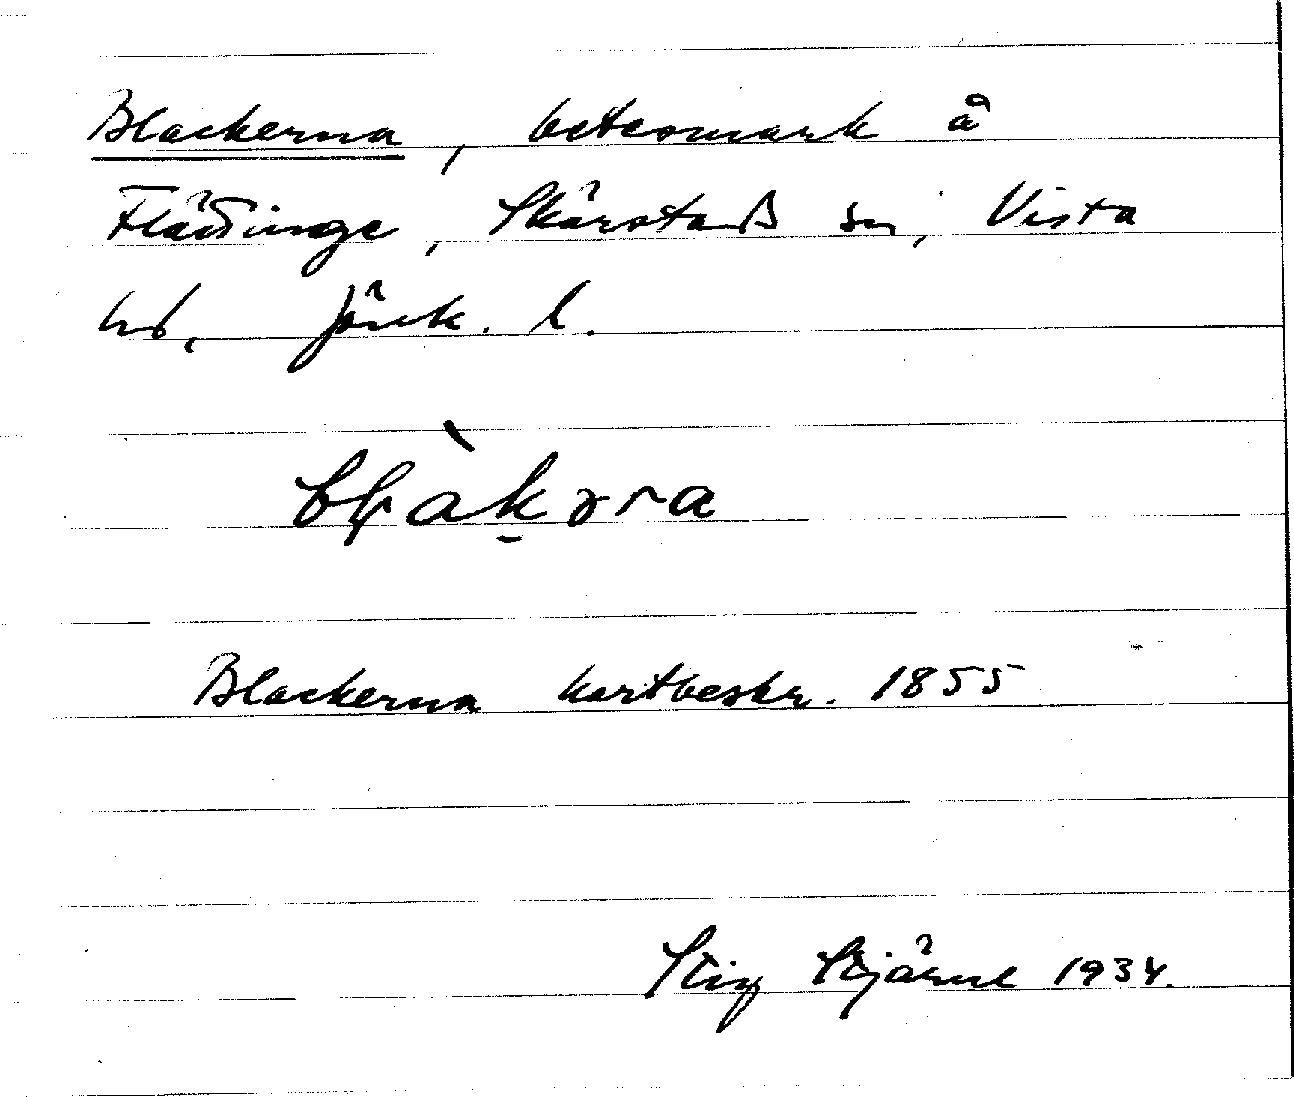 Blackerna, betesmark å
Flättinge, Skärstads sn, Vista
hd, Jönk. l.
Blackerna kartbeskr. 1855
Stig Stjärne 1934.